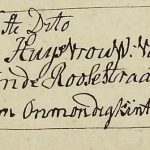 ste Dito
Huysvrouw: v
inde Roosestraa
on Onmondigkint